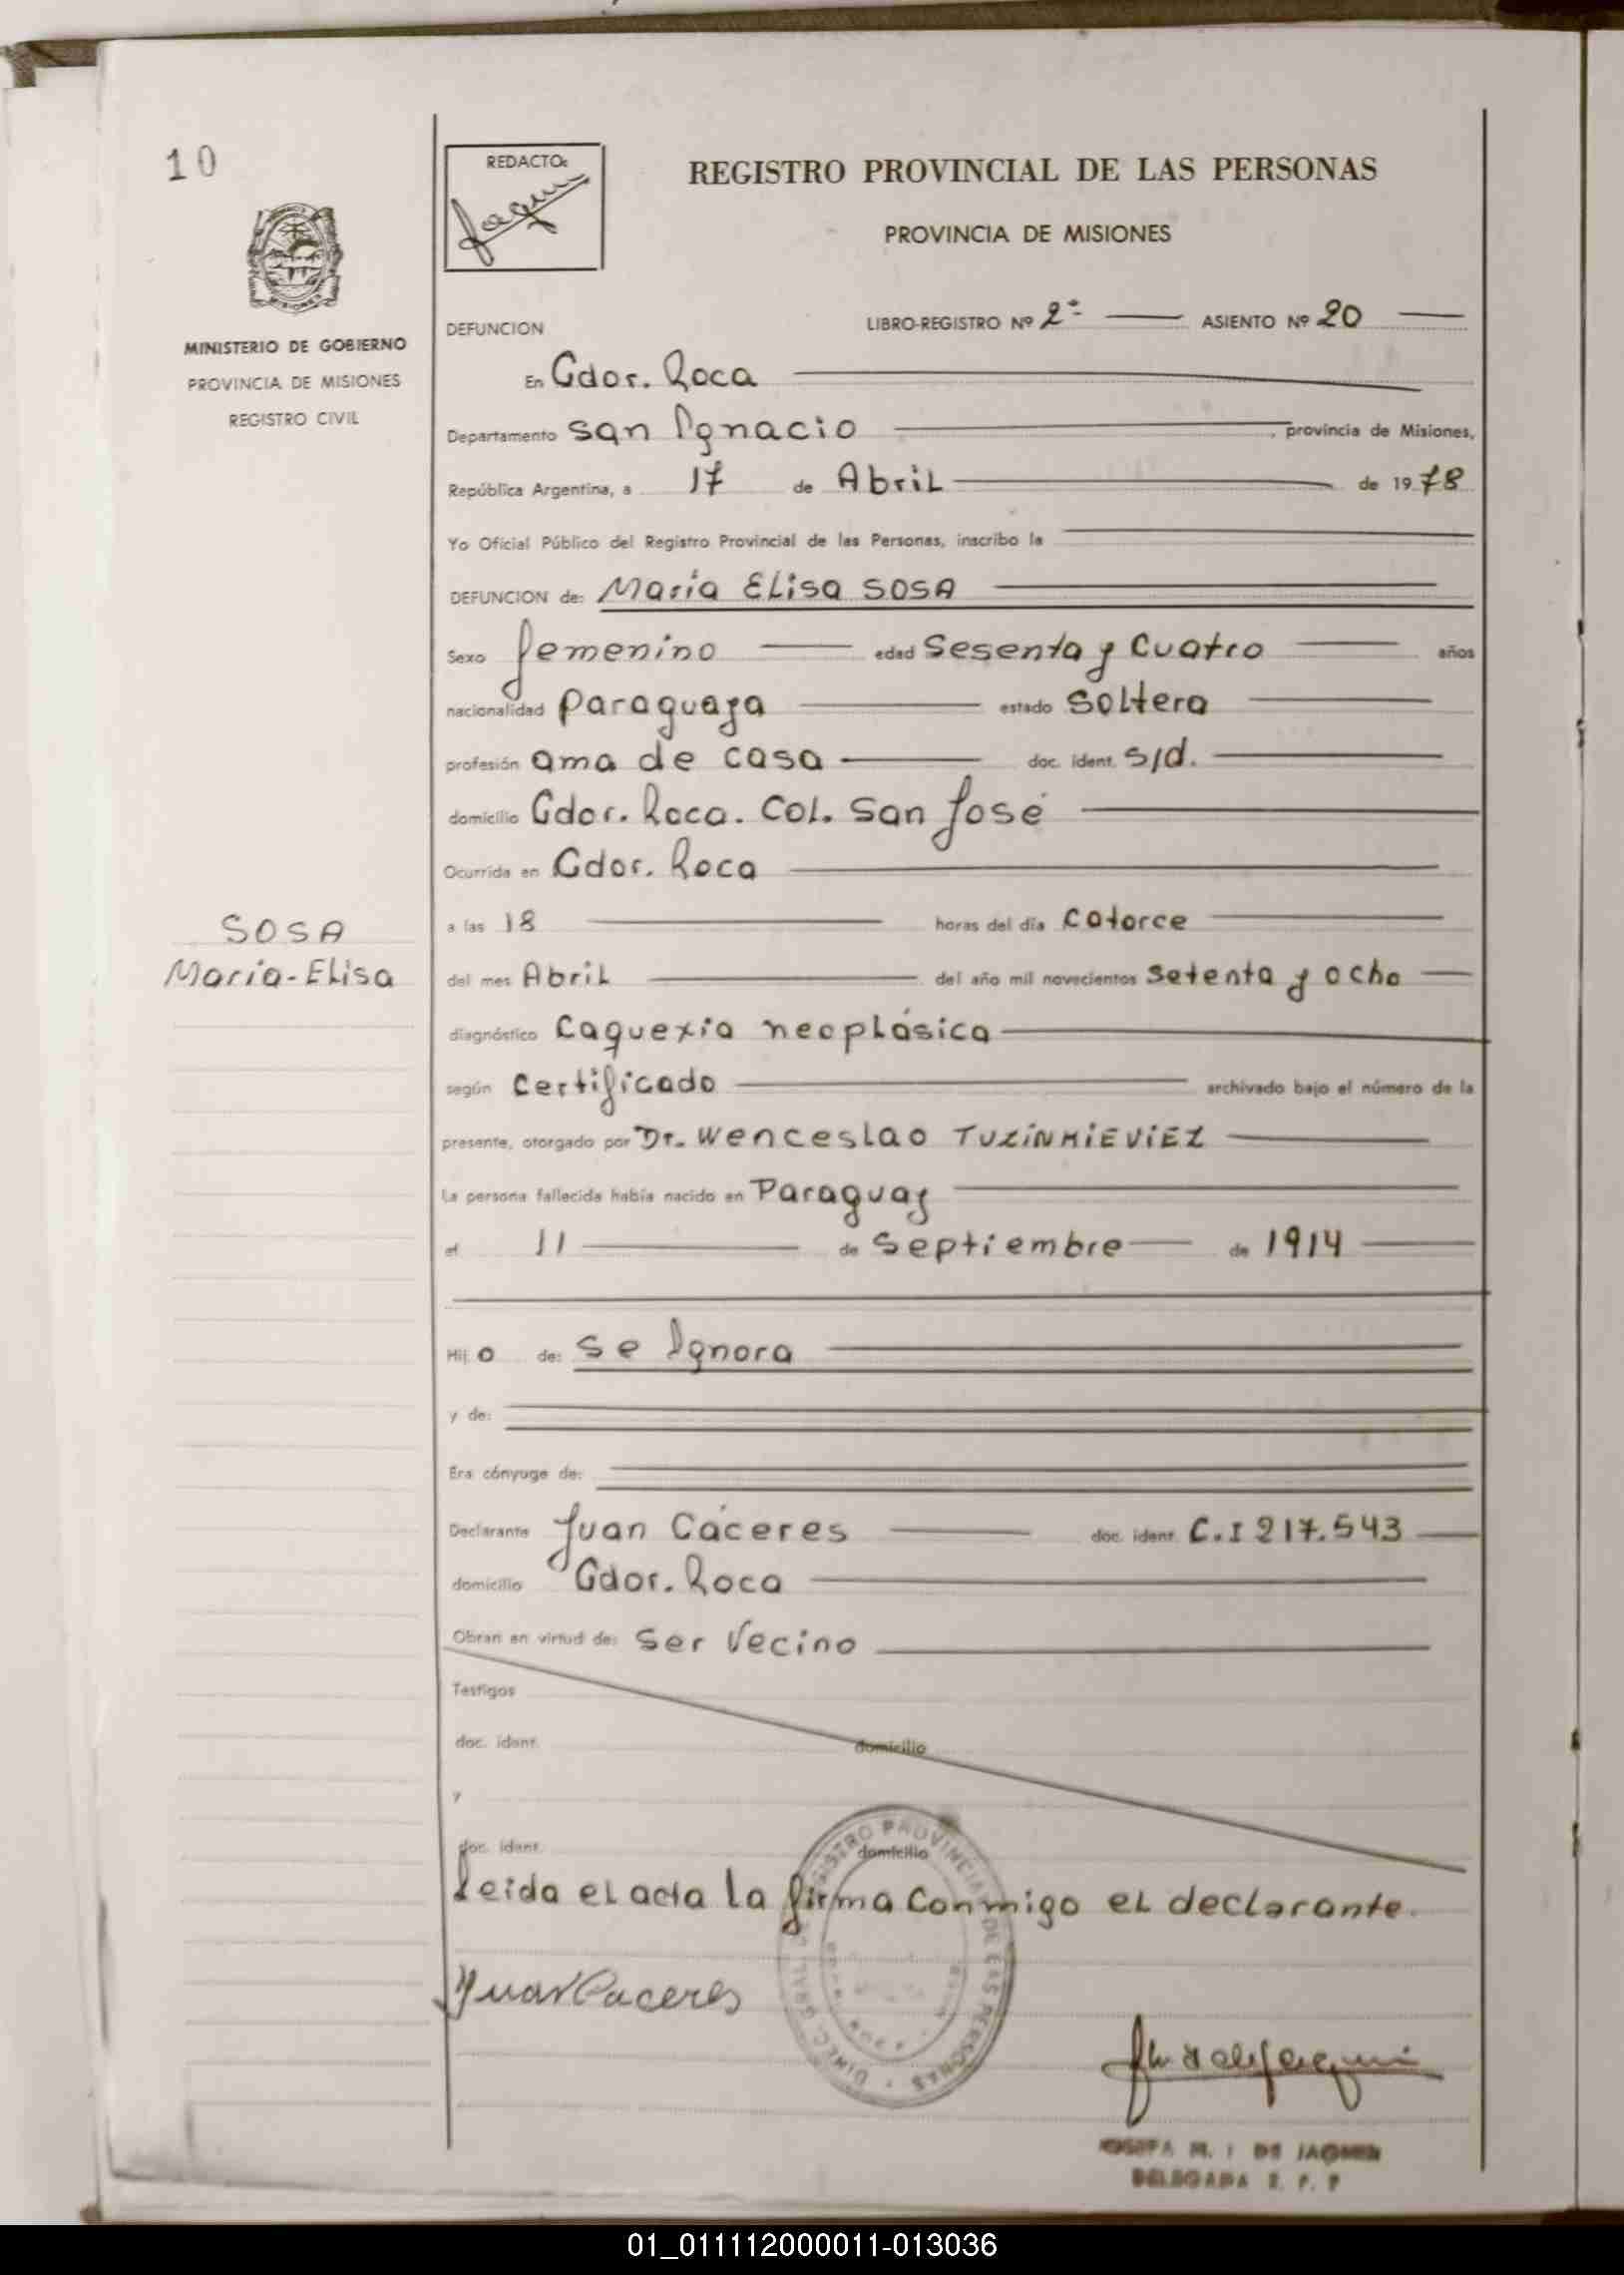 10
REDACTO:
REGISTRO PROVINCIAL DE LAS PERSONAS
PROVINCIA DE MISIONES
MINISTERIO DE GOBIERNO
PROVINCIA DE MISIONES
REGISTRO CIVIL
DEFUNCION LIBRO-REGISTRO Nº 2º ASIENTO Nº 20
En Gdor. Roca
Departamento San Ignacio, provincia de Misiones,
República Argentina, a 17 de Abril de 1978
Yo Oficial Público del Registro Provincial de las Personas, inscribo la
DEFUNCION de: María Elisa SOSA
Sexo femenino edad Sesenta y Cuatro años
nacionalidad Paraguaya estado Soltera
profesión ama de casa doc. ident. S/d.
domicilio Gdor. Roca. Col. San José
Ocurrida en Gdor. Roca
a las 18 horas del día Catorce
SOSA
María-Elisa
del mes Abril del año mil novecientos Setenta y ocho
diagnóstico Caquexia neoplásica
según Certificado archivado bajo el número de la
presente, otorgado por Dr. Wenceslao TUZINKIEVIEZ
La persona fallecida había nacido en Paraguay
el 11 de Septiembre de 1914
Hijo de: Se Ignora
y de:
Era cónyuge de:
Declarante Juan Cáceres doc. ident. C.I 217.543
domicilio Gdor. Roca
Obran en virtud de: Ser Vecino
Testigos
doc. ident. domicilio
y
doc. ident. domicilio
Leida el acta la firma Conmigo el declarante.
Juan Caceres
REGISTRO PROVINCIAL DE LAS PERSONAS
DIREC. GRAL.
M. I DE JAQMIN
DELEGADA R. P. P
01_011112000011-013036